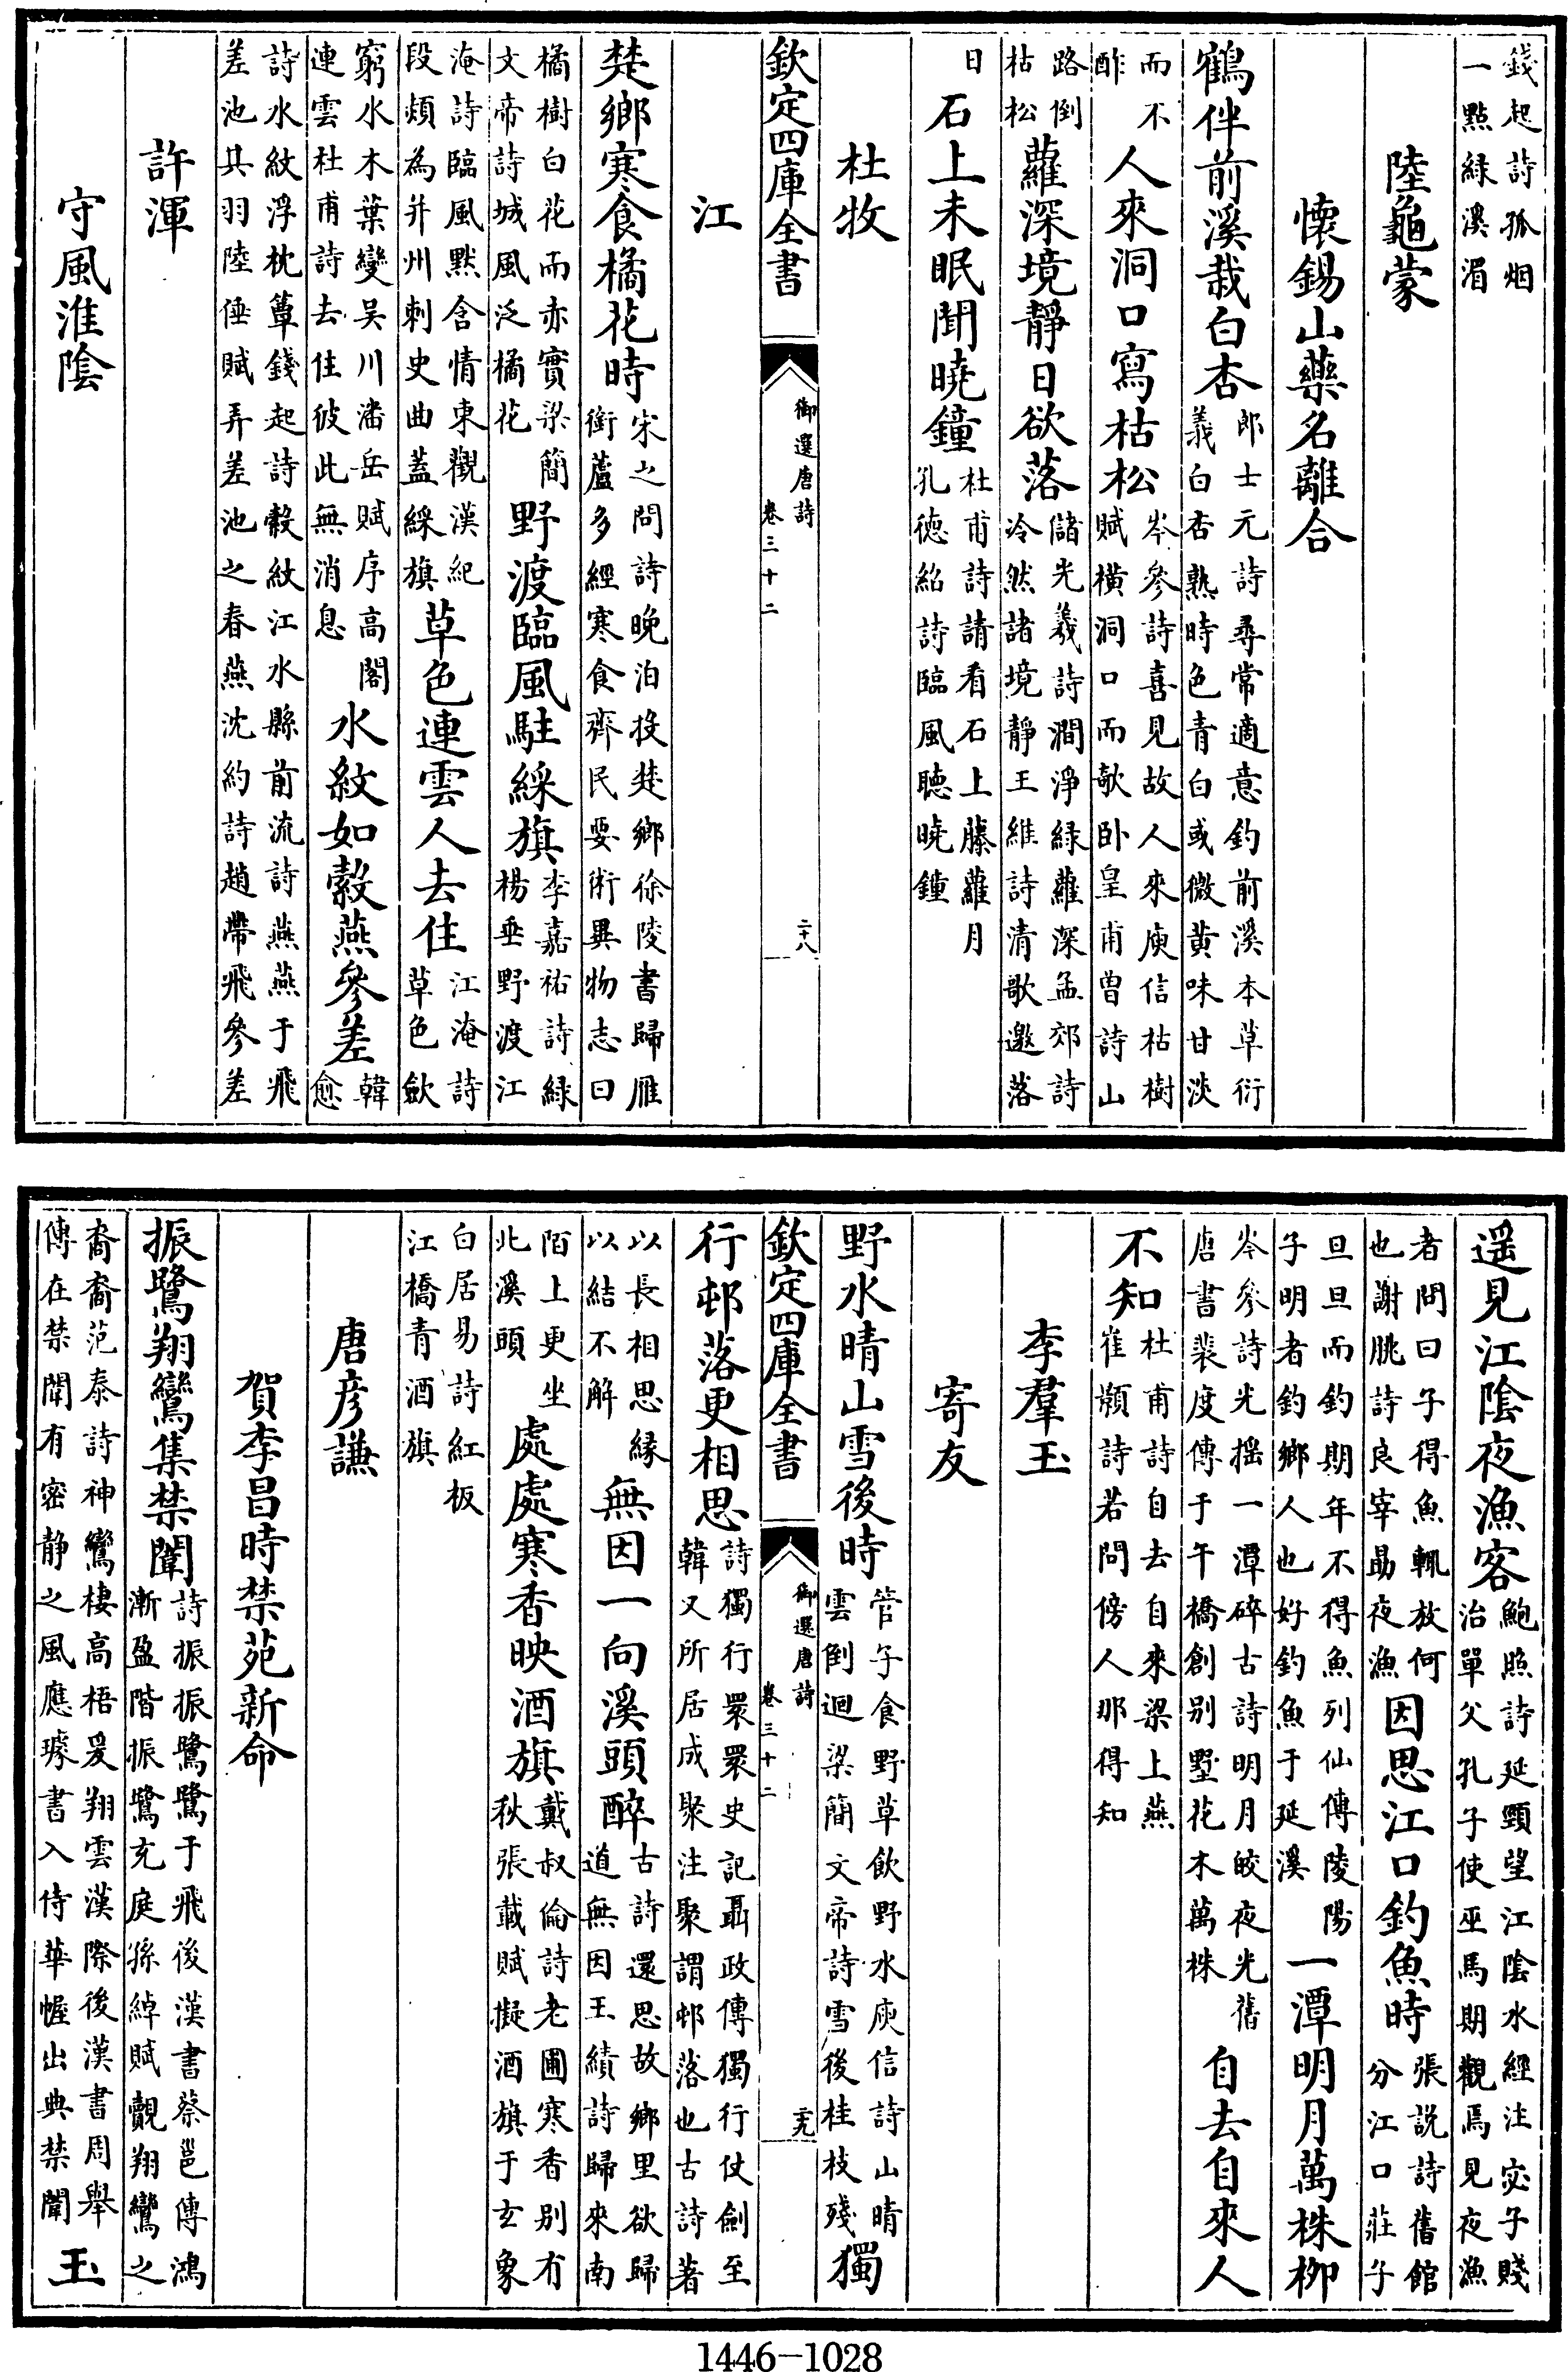 錢起詩孤烟
一點綠溪湄
陸龜蒙
懷錫山藥名離合
鶴伴前溪栽白杏郎士元詩尋常適意釣前溪本草衍
義白杏熟時色青白或微黄味甘淡
而不
酢人來洞口寫枯松岑參詩喜見故人來庾信枯樹
賦橫洞口而欹卧皇甫曾詩山
路倒
枯松蘿深境靜日欲落儲光羲詩澗淨綠蘿深孟郊詩
冷然諸境靜王維詩清歌邀落
日石上未眠聞曉鐘杜甫詩請看石上藤蘿月
孔德紹詩臨風聽曉鐘
杜牧
欽定四庫全書
御選唐詩
卷三十二
二十八
江
楚鄉寒食橘花時宋之問詩晚泊投楚鄉徐陵書歸雁
銜蘆多經寒食齊民要術異物志曰
橘樹白花而赤實梁簡
文帝詩城風泛橘花野渡臨風駐綵旗李嘉祐詩綠
楊垂野渡江
淹詩臨風默含情東觀漢紀
段熲為并州刺史曲蓋綵旗草色連雲人去住江淹詩
草色斂
窮水木葉變吳川潘岳賦序高閣
連雲杜甫詩去住彼此無消息水紋如縠燕參差韓
愈
詩水紋浮枕簟錢起詩縠紋江水縣前流詩燕燕于飛
差池其羽陸倕賦弄差池之春燕沈約詩趙帶飛參差
許渾
守風淮陰
遥見江陰夜漁客鮑照詩延頸望江陰水經注宓子賤
治單父孔子使巫馬期觀焉見夜漁
者問曰子得魚輒放何
也謝朓詩良宰勗夜漁因思江口釣魚時張說詩舊館
分江口莊子
旦旦而釣期年不得魚列仙傳陵陽
子明者釣鄉人也好釣魚于延溪一潭明月萬株柳
岑參詩光揺一潭碎古詩明月皎夜光舊
唐書裴度傳于午橋創別墅花木萬株自去自來人
不知杜甫詩自去自來梁上燕
崔顥詩若問傍人那得知
李羣玉
寄友
野水晴山雪後時管子食野草飲野水庾信詩山晴
雲倒迴梁簡文帝詩雪後桂枝殘獨
欽定四庫全書
御選唐詩
卷三十二
二十九
行邨落更相思詩獨行睘睘史記聶政傳獨行仗劍至
韓又所居成聚注聚謂邨落也古詩著
以長相思緣
以結不解無因一向溪頭醉古詩還思故鄉里欲歸
道無因王績詩歸來南
陌上更坐
北溪頭處處寒香映酒旗戴叔倫詩老圃寒香別有
秋張載賦擬酒旗于玄象
白居易詩紅板
江橋青酒旗
唐彦謙
賀李昌時禁苑新命
振鷺翔鸞集禁闈詩振振鷺鷺于飛後漢書蔡邕傳鴻
漸盈階振鷺充庭孫綽賦覿翔鸞之
裔裔范泰詩神鸞棲高梧爰翔雲漢際後漢書周舉
傳在禁闈有密静之風應璩書入侍華幄出典禁闈玉
1446-1028